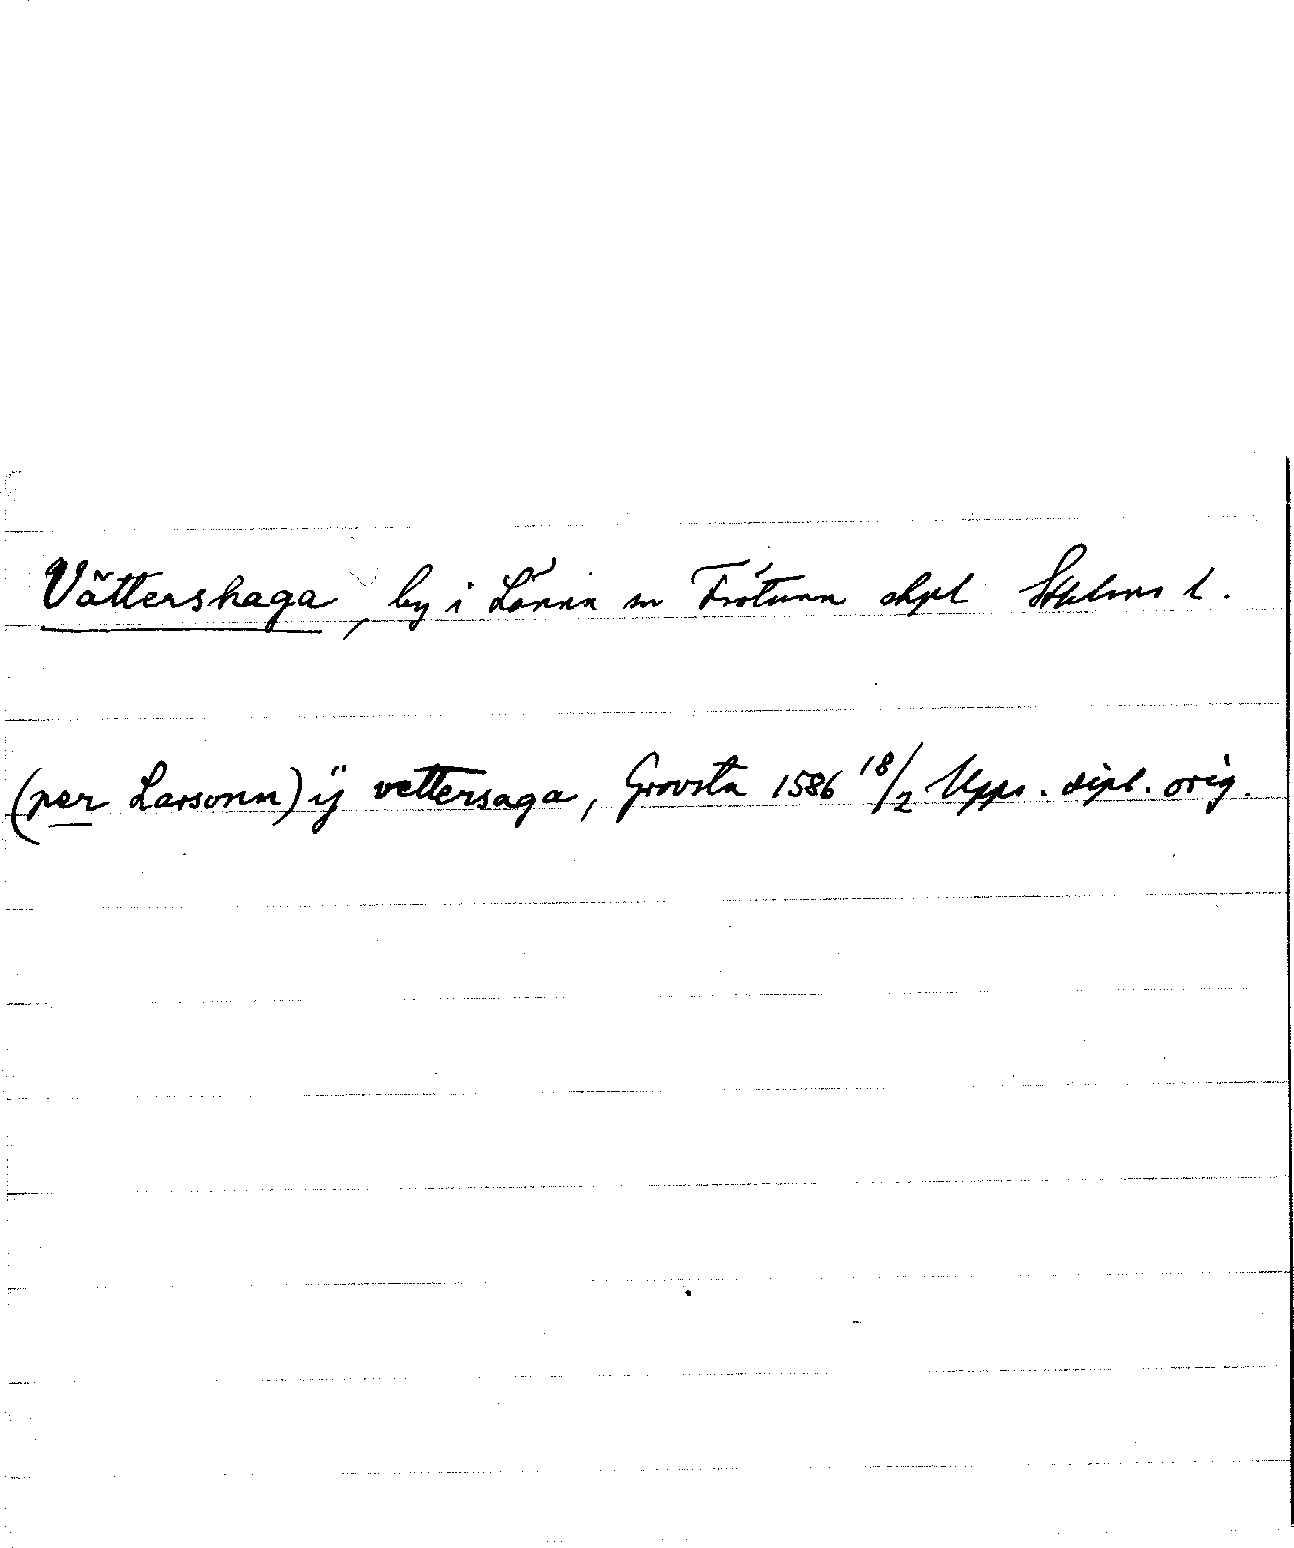 Vättershaga, by i Länna sn Frötuna skpl Sthlms l.
(per Larsonn) ij vettersaga, Grovsta 1586 18/2 Upps. dipl. orig.